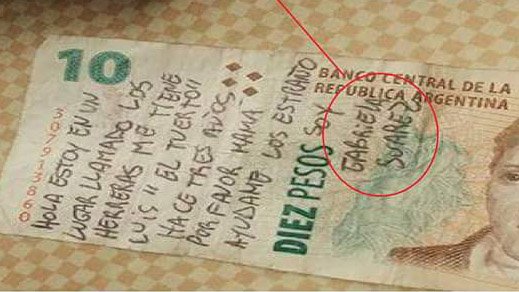 10
BANCO CENTRAL DE LA
REPÚBLICA ARGENTINA
DIEZ PESOS
HOLA ESTOY EN UN
LUGAR LLAMADO LOS
HERRERAS ME TIENE
LUIS "EL TUERTO"
HACE TRES AÑOS
POR FAVOR MAMÁ
AYUDAME LOS ESTRAÑO
SOY
GABRIELA
SUAREZ